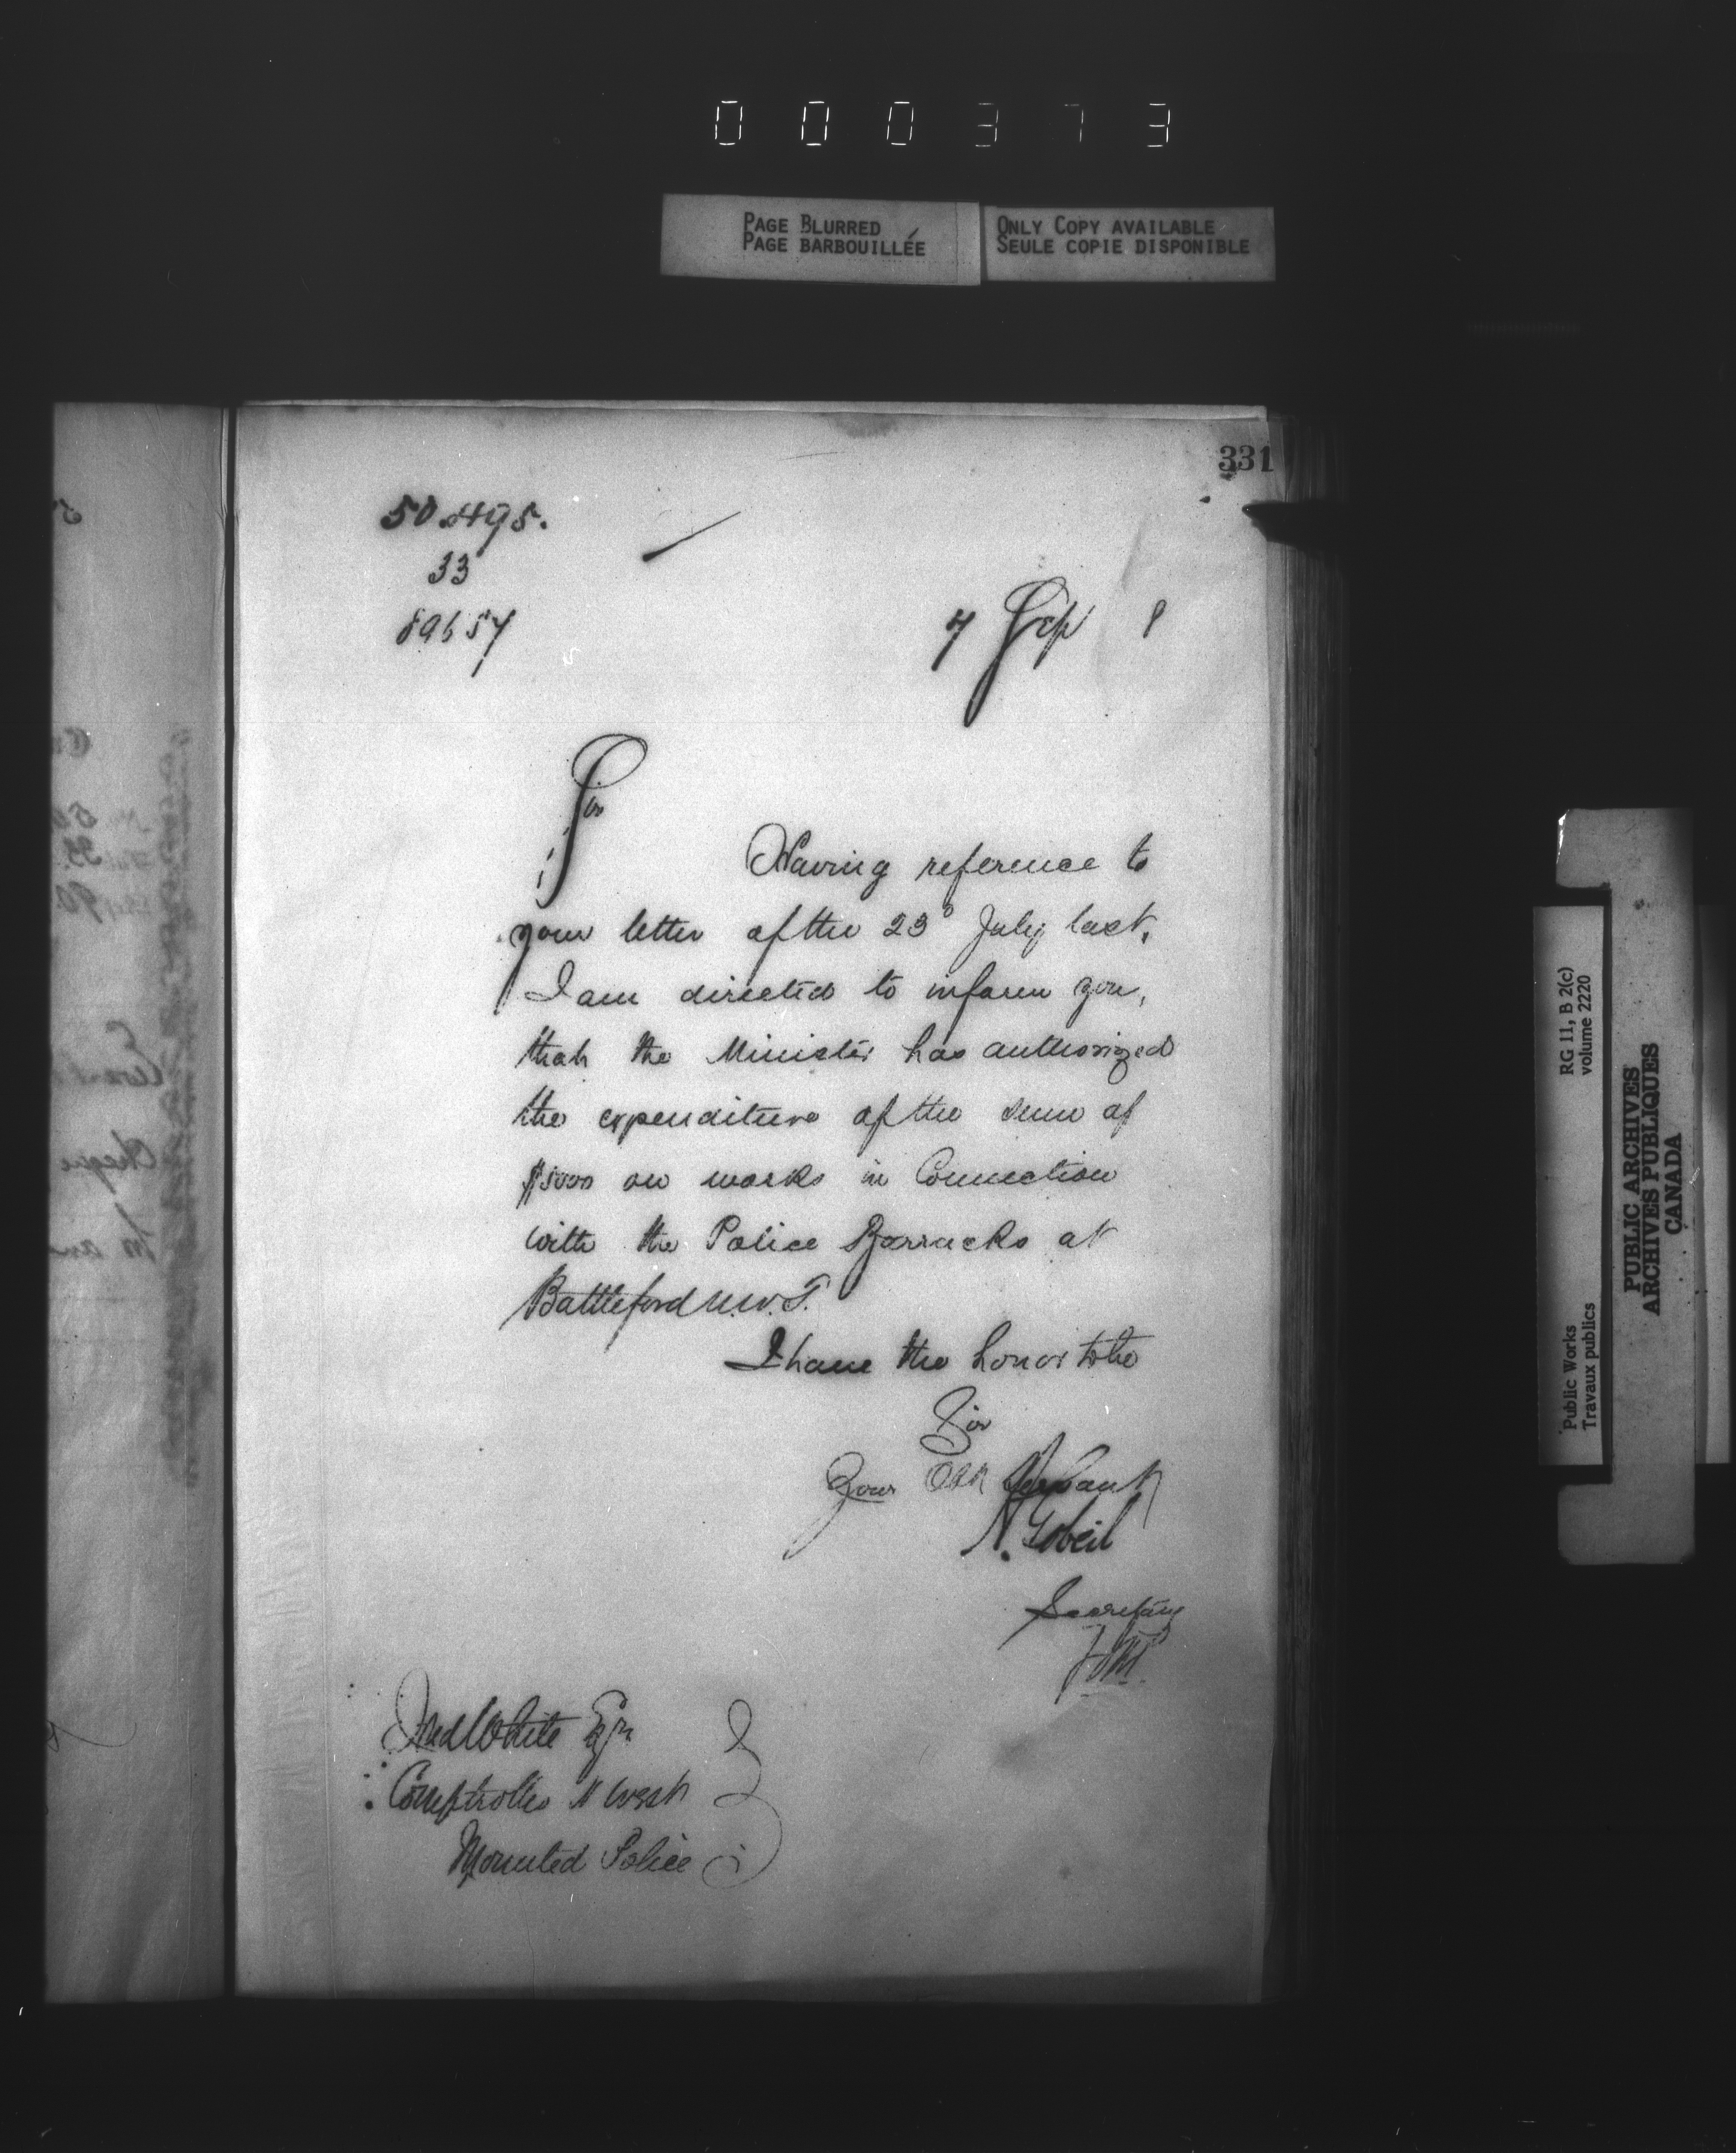 000373
PAGE BLURRED
PAGE BARBOUILLÉE
ONLY COPY AVAILABLE
SEULE COPIE DISPONIBLE
331
33
7 Sep 8
Sir
Having reference to
your letter of the 23d July last,
I am directed to inform you,
that the Minister has authorized
the expenditure of the sum of
$5000 on works in Connection
with the Police Barracks at
Battleford N.W.T.
I have the honor to be
Sir
Your Obt Servant
A. Gobeil
Secretary
Fred White Esqr.
Comptroller N West
Mounted Police
RG 11, B 2(c)
volume 2220
Public Works
Travaux publics
PUBLIC ARCHIVES
ARCHIVES PUBLIQUES
CANADA